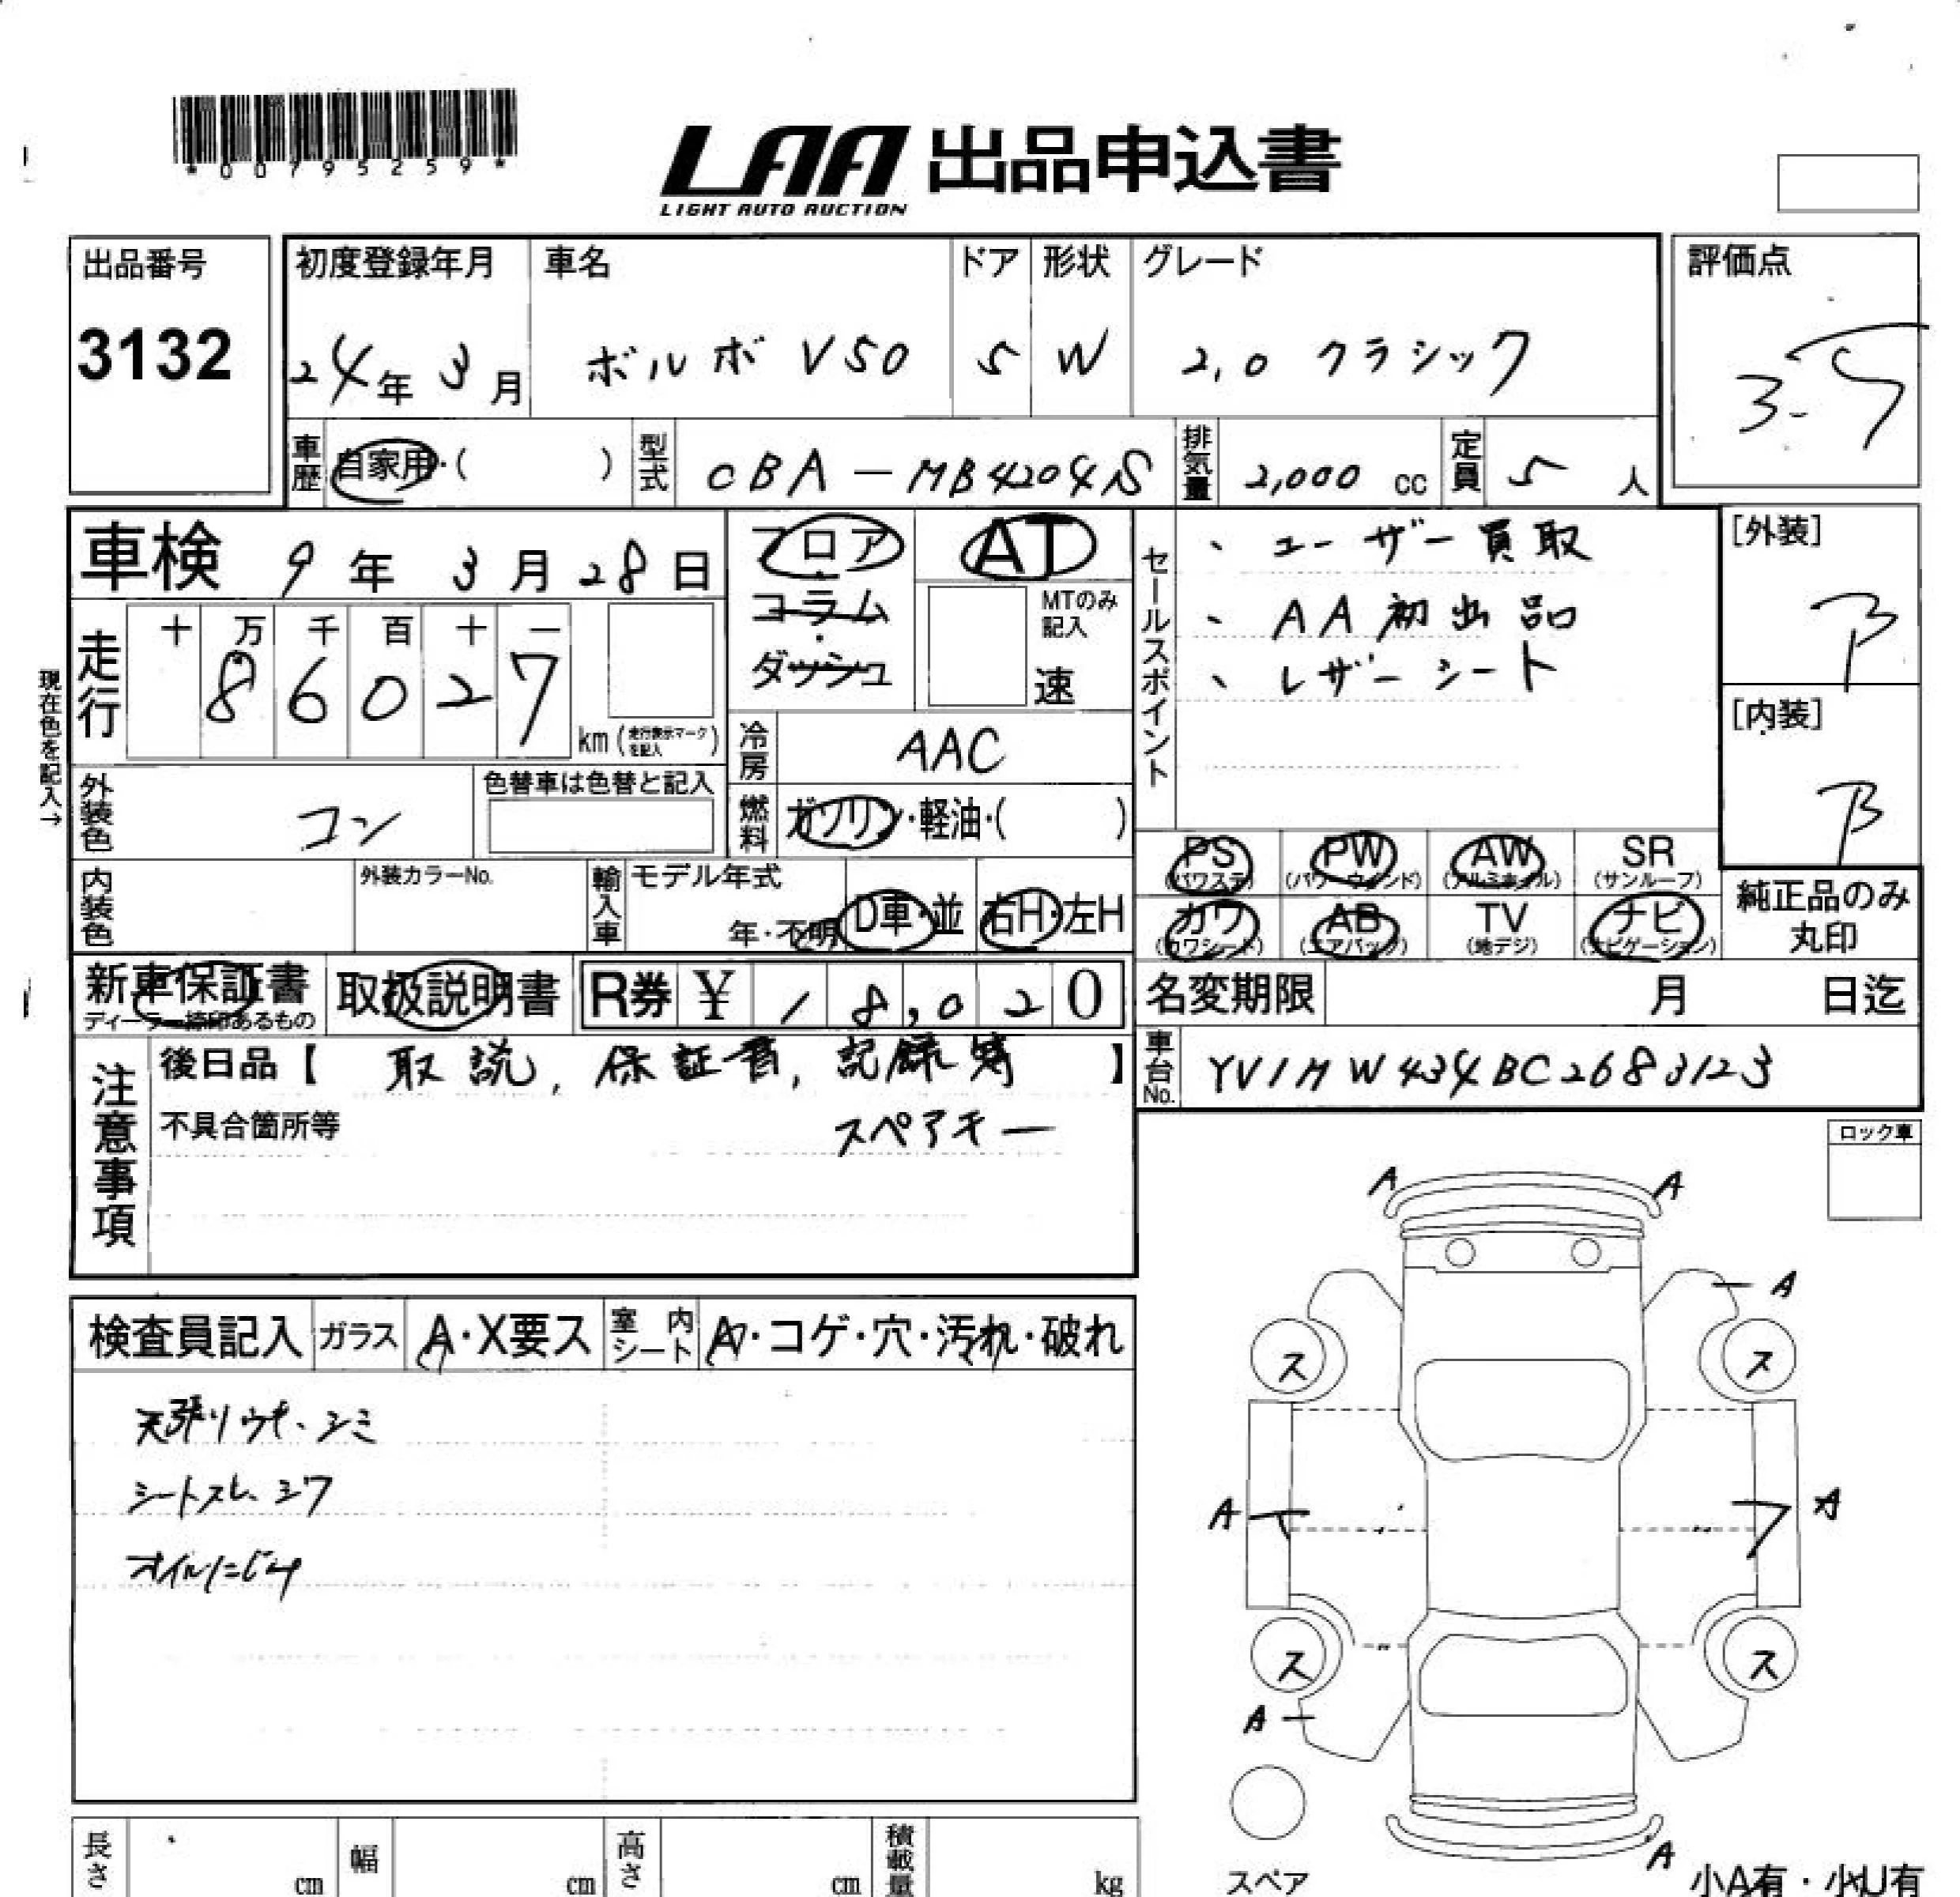 *00795259*
LAA 出品申込書
LIGHT AUTO AUCTION
出品番号
3132
初度登録年月
24年 3月
車名
ボルボ V50
ドア
5
形状
W
グレード
2.0 クラシック
評価点
3.5
車歴 自家用・( )
型式 CBA-MB4204S
排気量 2,000 cc
定員 5 人
車検 9年 3月 28日
フロア・コラム・ダッシュ
AT
MTのみ記入
速
セールスポイント
、ユーザー買取
、AA初出品
、レザーシート
[外装]
B
[内装]
B
現在色を記入→
走行
十 万 千 百 十 一
8 6 0 2 7
km (走行表示マークを記入)
冷房 AAC
外装色 コン
色替車は色替と記入
燃料 ガソリン・軽油・( )
内装色
外装カラーNo.
輸入車
モデル年式
年・不明
D車・並
右H・左H
PS (パワステ)
PW (パワーウインド)
AW (アルミホイル)
SR (サンルーフ)
カワ (カワシート)
AB (エアバック)
TV (地デジ)
ナビ (ナビゲーション)
純正品のみ丸印
新車保証書
ディーラー捺印あるもの
取扱説明書
R券 ¥ 18,020
名変期限 月 日迄
車台No. YV1MW434BC2683123
注意事項
後日品【 取説, 保証書, 記録簿 】
不具合箇所等
スペアキー
ロック車
検査員記入
ガラス A・X要ス
室内シート A・コゲ・穴・汚れ・破れ
天張りウキ、シミ
シートスレ、シワ
オイルにじみ
A A
A
ス ス
A A
ス ス
A
A
スペア
小A有・小U有
長さ cm
幅 cm
高さ cm
積載量 kg